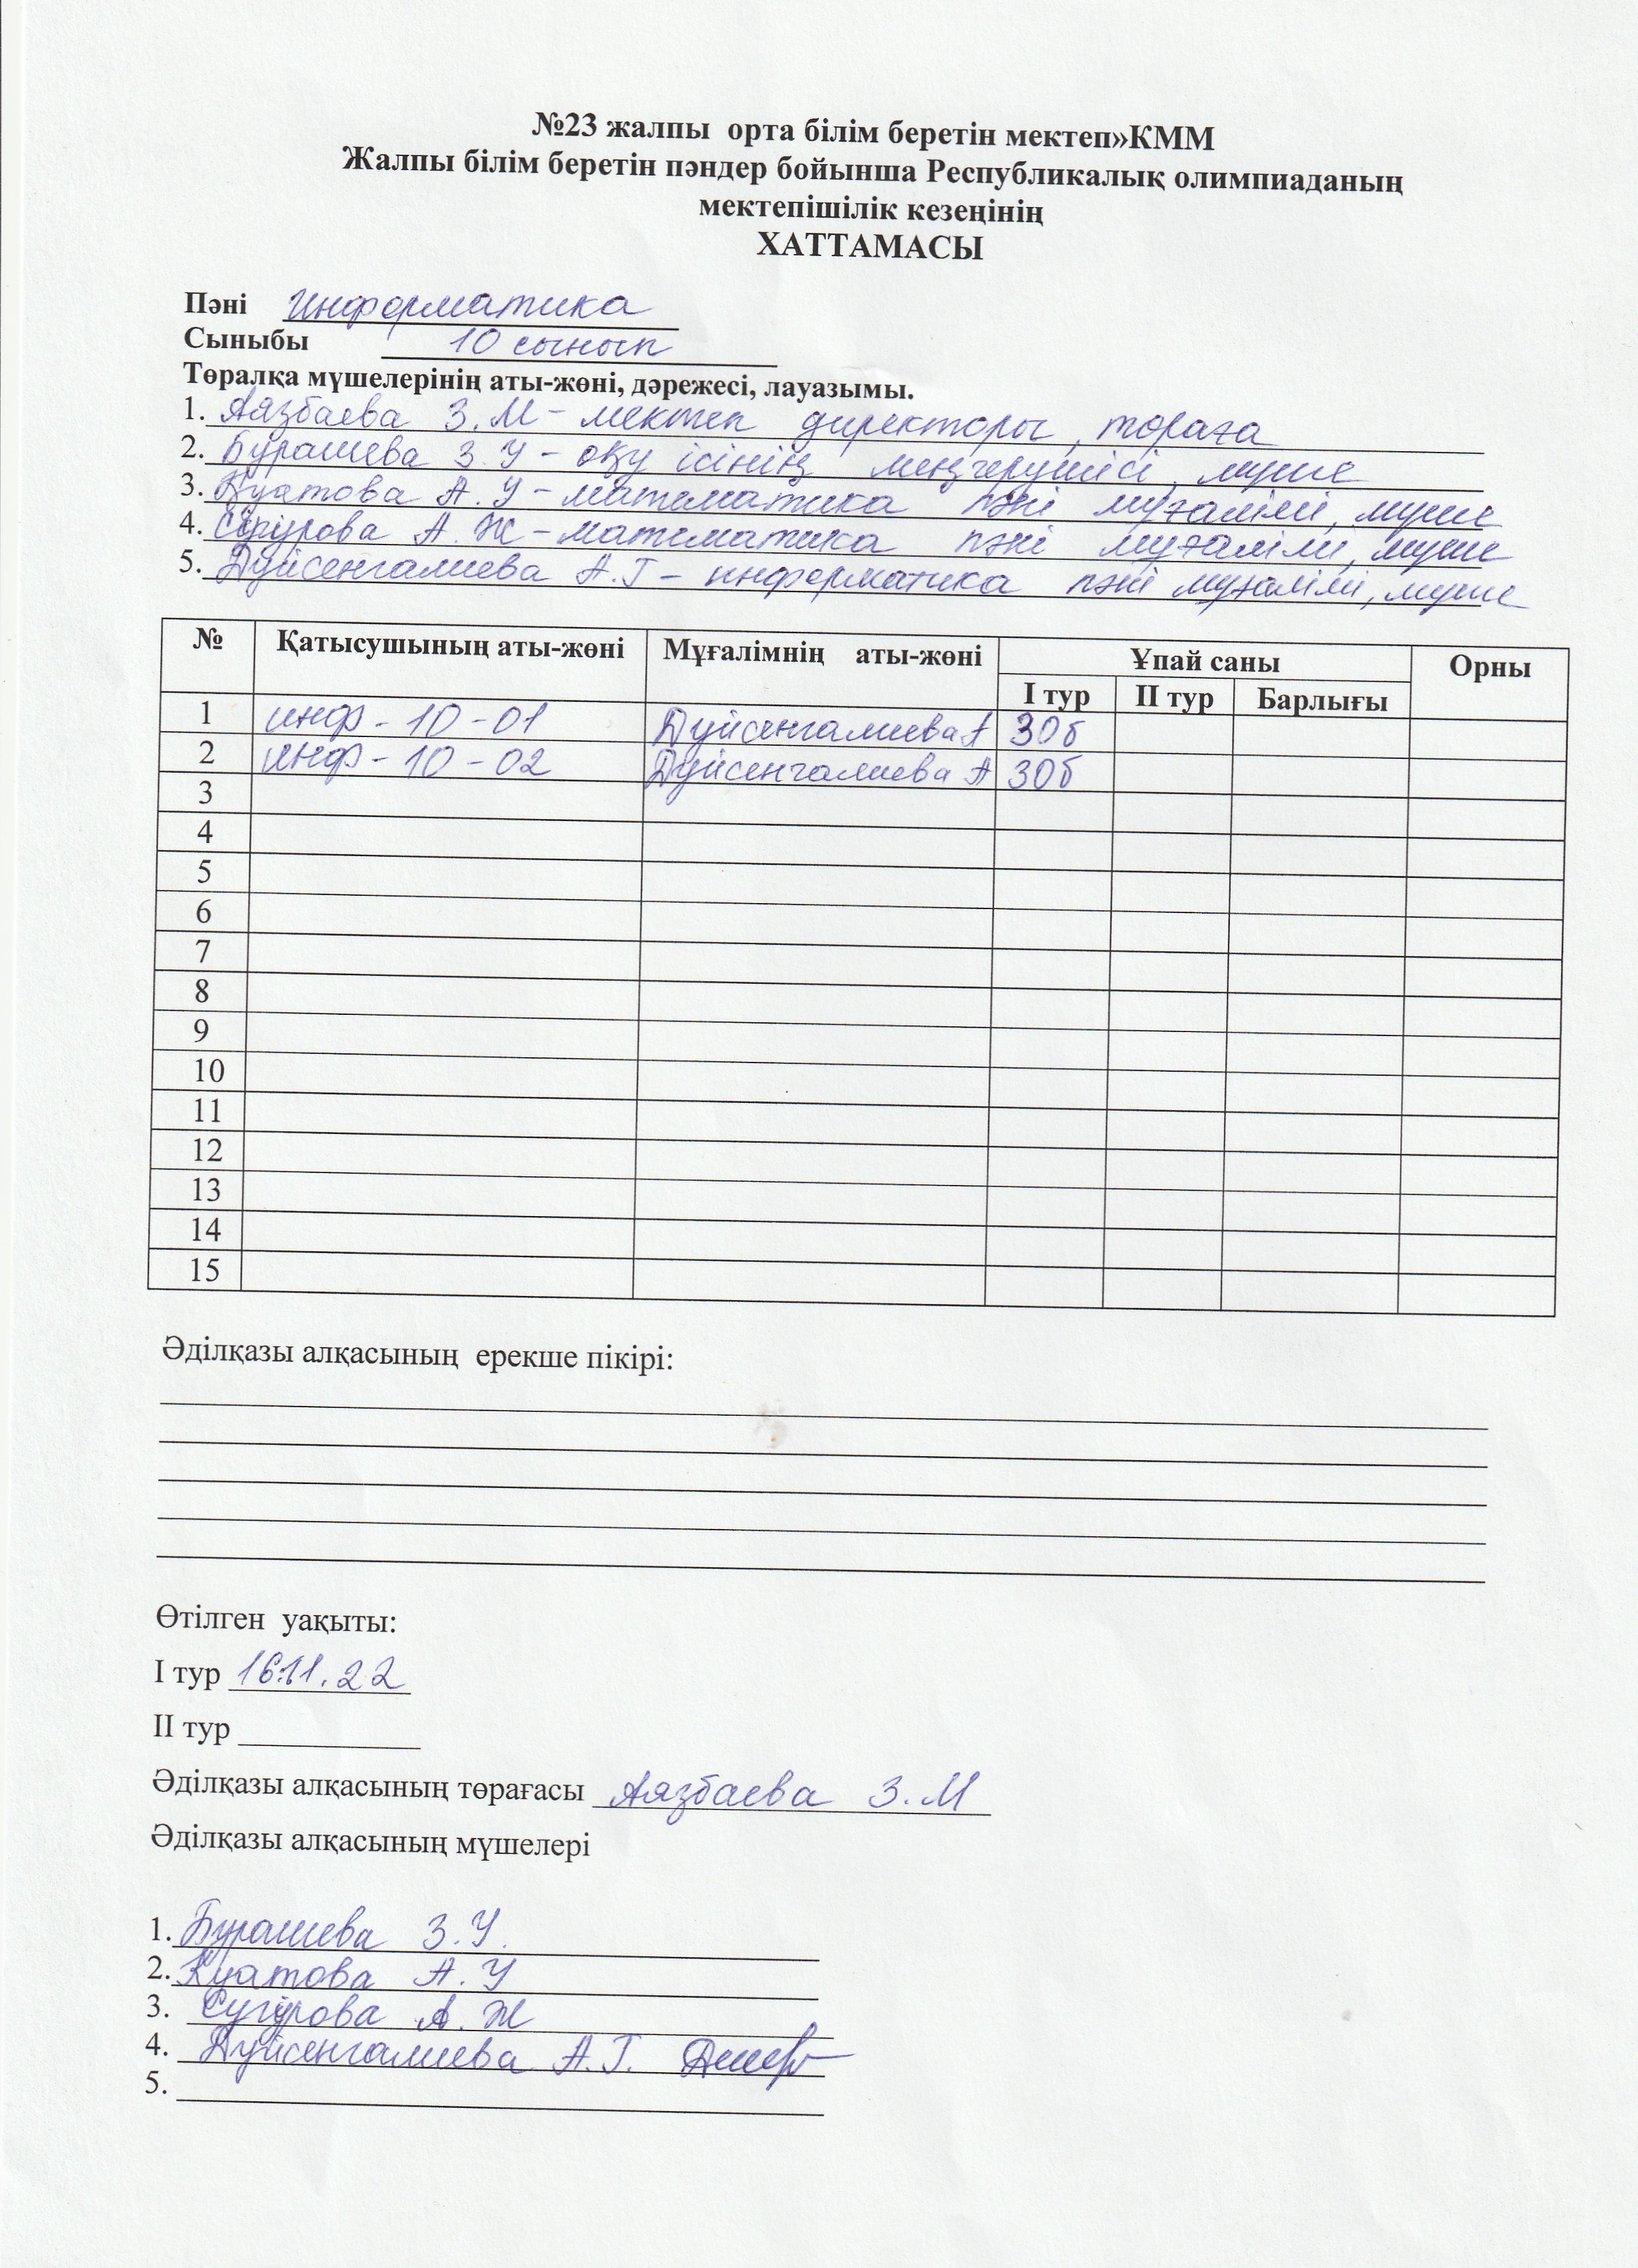 №23 жалпы орта білім беретін мектеп»КММ
Жалпы білім беретін пәндер бойынша Республикалық олимпиаданың
мектепішілік кезеңінің
ХАТТАМАСЫ
Пәні Информатика
Сыныбы 10 сынып
Төралқа мүшелерінің аты-жөні, дәрежесі, лауазымы.
1. Аязбаева З.М – мектеп директоры, төраға
2. Бурашева З.У – оқу ісінің меңгерушісі, мүше
3. Куатова А.У – математика пәні мұғалімі, мүше
4. Сүгірова А.Ж – математика пәні мұғалімі, мүше
5. Дүйсенгалиева А.Г – информатика пәні мұғалімі, мүше
№ Қатысушының аты-жөні Мұғалімнің аты-жөні Ұпай саны Орны
І тур ІІ тур Барлығы
1 инф - 10 - 01 Дүйсенгалиева А 30б
2 инф - 10 - 02 Дүйсенгалиева А 30б
3
4
5
6
7
8
9
10
11
12
13
14
15
Әділқазы алқасының ерекше пікірі:
Өтілген уақыты:
І тур 16.11.22
ІІ тур
Әділқазы алқасының төрағасы Аязбаева З.М
Әділқазы алқасының мүшелері
1. Бурашева З.У.
2. Куатова А.У
3. Сугурова А.Ж
4. Дүйсенгалиева А.Г.
5.